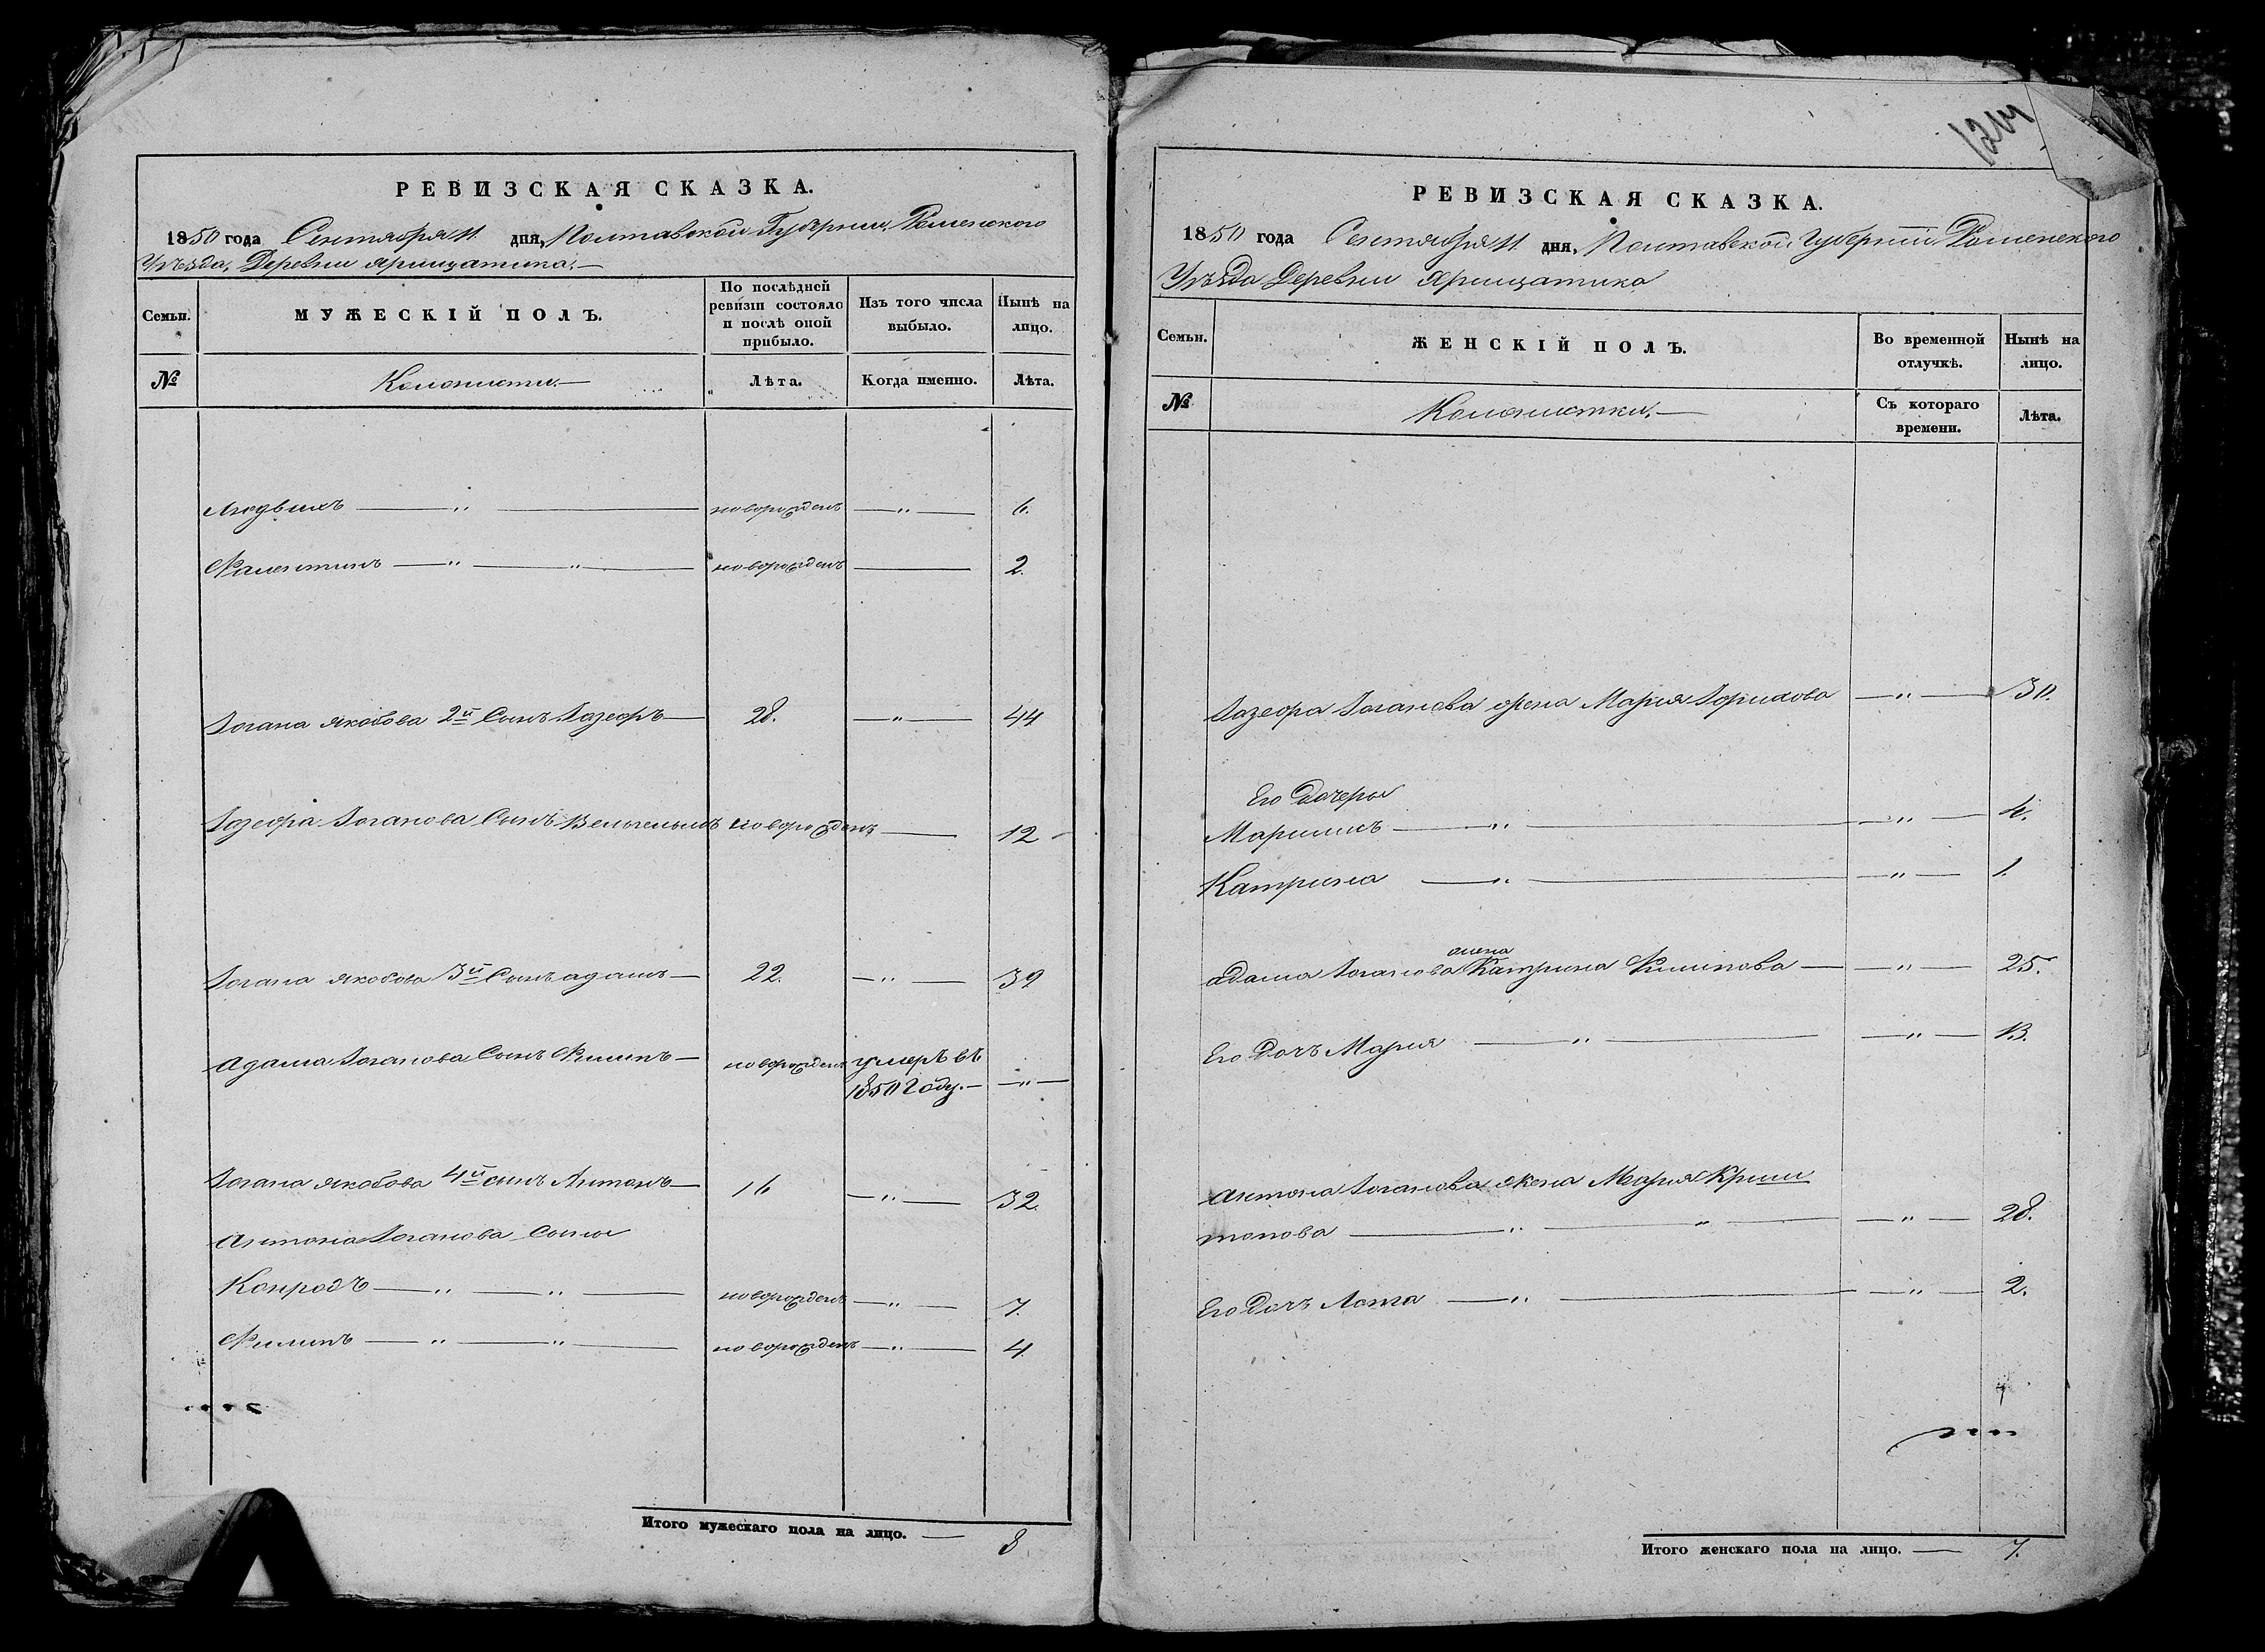 РЕВИЗСКАЯ СКАЗКА.
1850 года Сентября 11 дня, Полтавской Губернии, Роменского
Уѣзда, Деревни
Семьи.
МУЖЕСКІЙ ПОЛЪ.
По послѣдней ревизіи состояло и послѣ оной прибыло.
Изъ того числа выбыло.
Нынѣ на лицо.
№
Колонисты.
Лѣта.
Когда именно.
Лѣта.
Людвихъ — „ — новорожденъ — „ — 6.
Фалентинъ — „ — „ — новорожденъ — 2.
Іогана Якобова 2й Сынъ — 28. — „ — 44
Іогансва Сынъ новорожденъ — 12
Іогана Якобова 3й Сынъ адамъ — 22. — „ — 39
Адама Іоганова Сынъ Филипъ — новорожденъ умеръ въ
1850 Году. — „ —
Іогана Якобова 4й сынъ Антонъ — 16 — „ — 32.
Антона Іоганова Сыны
Конродъ — „ — „ — новорожденъ — „ — 7.
Филипъ — „ — „ — новорожденъ — „ — 4
Итого мужескаго пола на лицо. — 8
1214
РЕВИЗСКАЯ СКАЗКА.
1850 года Сентября 11 дня, Полтавской Губернiи Роменского
Уѣзда Деревни
Семьи.
ЖЕНСКІЙ ПОЛЪ.
Во временной отлучкѣ.
Нынѣ на лицо.
№
Колонистки. —
Съ котораго времени.
Лѣта.
Іоганова жена Мария — „ — 30.
Его Дочеры
— „ — „ — 4.
Катрина — „ — „ — 1.
жена
адама Іоганова Катрина Филипова — „ — 25.
Его Дочъ Мария — „ — „ — 13.
Антона Іоганова жена Мария Криш
топова — „ — „ — „ — 28.
Его Дочъ — „ — „ — 2.
Итого женскаго пола на лицо. — 7.